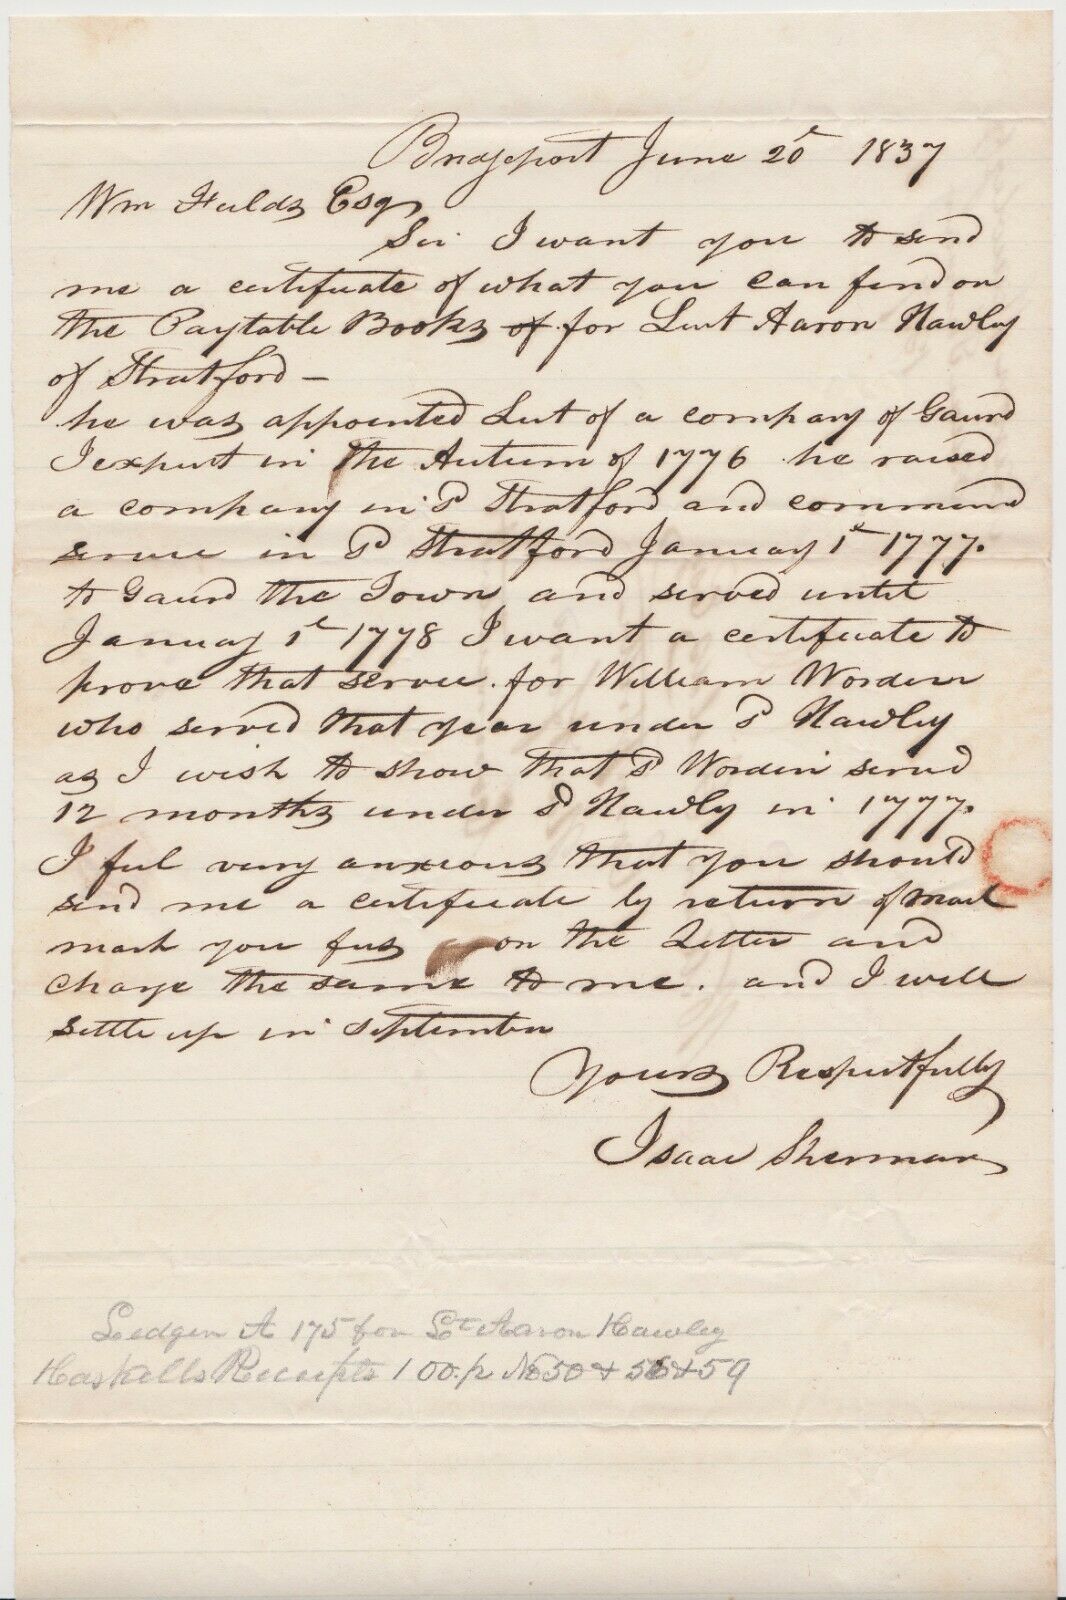 Bridgeport June 20th 1837
Wm Fields Esq
Sir I want you to send
me a certificate of what you can find on
the Paytable Books of for Leut Aaron Hawley
of Stratford —
he was appointed Leut of a company of Gaurd
I expect in the Autumn of 1776 he raised
a company in sd Stratford and commend
service in sd Stratford January 1st 1777.
to Gaurd the Town and served until
January 1st 1778 I want a certificate to
prove that service for William Worden
who served that year under sd Hawley
as I wish to show that sd Worden served
12 months under sd Hawley in 1777.
I feel very anxious that you should
send me a certificate by return of mail
mark you fees on the Letter and
charge the same to me. and I will
settle up in September
Yours Respectfully
Isaac Sherman
Ledger A 175 for Lt Aaron Hawley
Haskells Receipts 100.p No 50 & 56 & 59